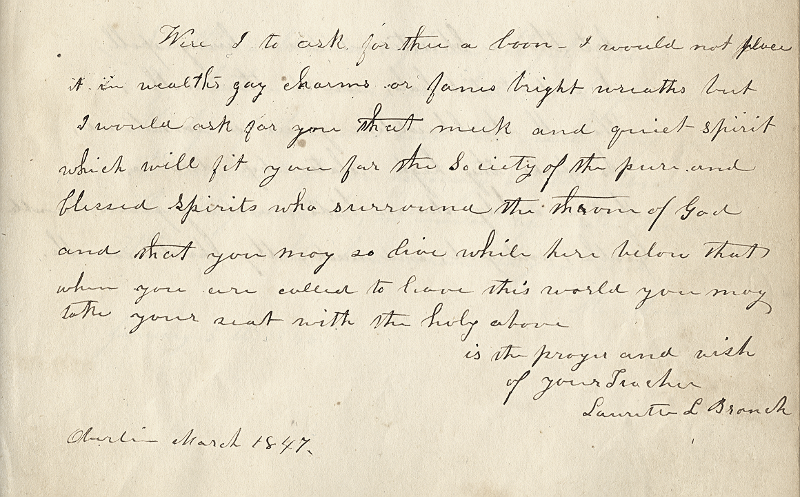 Were I to ask for thee a boon - I would not place
it in wealth's gay charms or fames bright wreaths but
I would ask for you that meek and quiet spirit
which will fit you for the Society of the pure and
blessed spirits who surround the throne of God
and that you may so live while here below that
when you are called to leave this world you may
take your seat with the holy above
is the prayer and wish
of your Teacher
Lauretta L Branch
Oberlin March 1847.